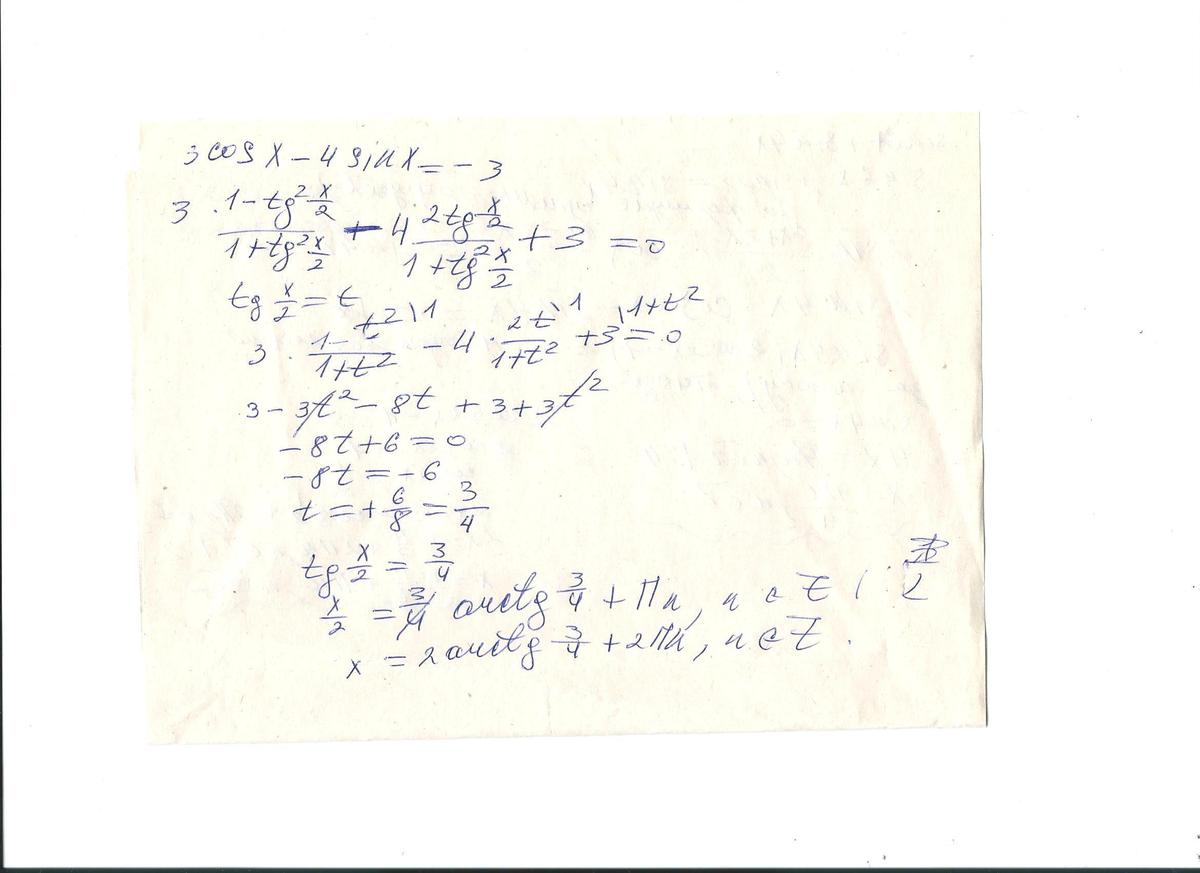 3 cos x - 4 sin x = - 3
3 · (1 - tg² x/2)/(1 + tg² x/2) - 4 (2 tg x/2)/(1 + tg² x/2) + 3 = 0
tg x/2 = t
3 · (1 - t²)/(1 + t²) \1 - 4 · 2t/(1 + t²) \1 + 3 \1+t² = 0
3 - 3t² - 8t + 3 + 3t²
- 8t + 6 = 0
- 8t = - 6
t = + 6/8 = 3/4
tg x/2 = 3/4
x/2 = arctg 3/4 + Пn, n ∈ Z | · 2
x = 2 arctg 3/4 + 2Пn, n ∈ Z.